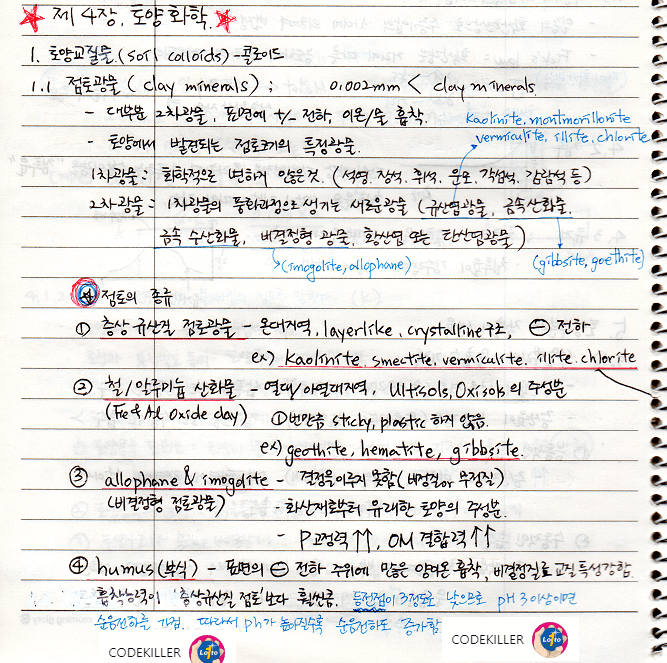 제 4장. 토양 화학.
1. 토양교질물.(soil colloids) - 콜로이드
1.1 점토광물 (clay minerals) ; 0.002mm < clay minerals
- 대부분 2차광물, 표면에 +/- 전하, 이온/물 흡착.
kaolinite, montmorillonite
vermiculite, illite, chlorite
- 토양에서 발견되는 점토크기의 특정광물.
1차광물 : 화학적으로 변하지 않은것. (석영. 장석. 휘석. 운모. 각섬석. 감람석 등)
2차광물 : 1차광물의 풍화과정으로 생기는 새로운광물 (규산염광물, 금속산화물.
금속 수산화물, 비결정형 광물, 황산염 또는 탄산염광물)
(imogolite, allophane)
(gibbsite, goethite)
점토의 종류
① 층상 규산질 점토광물 - 온대지역, layerlike, crystalline 구조, ⊖ 전하
ex) kaolinite, smectite, vermiculite. illite. chlorite
② 철/알루미늄 산화물 - 열대/아열대지역, Ultisols, Oxisols의 주성분
(Fe & Al Oxide clay) ①번만큼 sticky, plastic 하지 않음.
ex) geothite, hematite, gibbsite.
③ allophane & imogolite - 결정을이루지 못함 (비정질or 무정질)
(비결정형 점토광물) - 화산재로부터 유래한 토양의 주성분.
P고정력↑↑, OM 결합력↑↑
④ humus (부식) - 표면의 ⊖ 전하 주위에 많은 양이온 흡착, 비결정질로 교질특성강함.
흡착능력이 '층상규산질 점토'보다 훨씬큼. 등전점이 3정도로 낮으므로 pH 3이상이면
순음전하를 가짐. 따라서 pH가 높아질수록 순음전하도 증가함
CODEKILLER Lotto
CODEKILLER Lotto